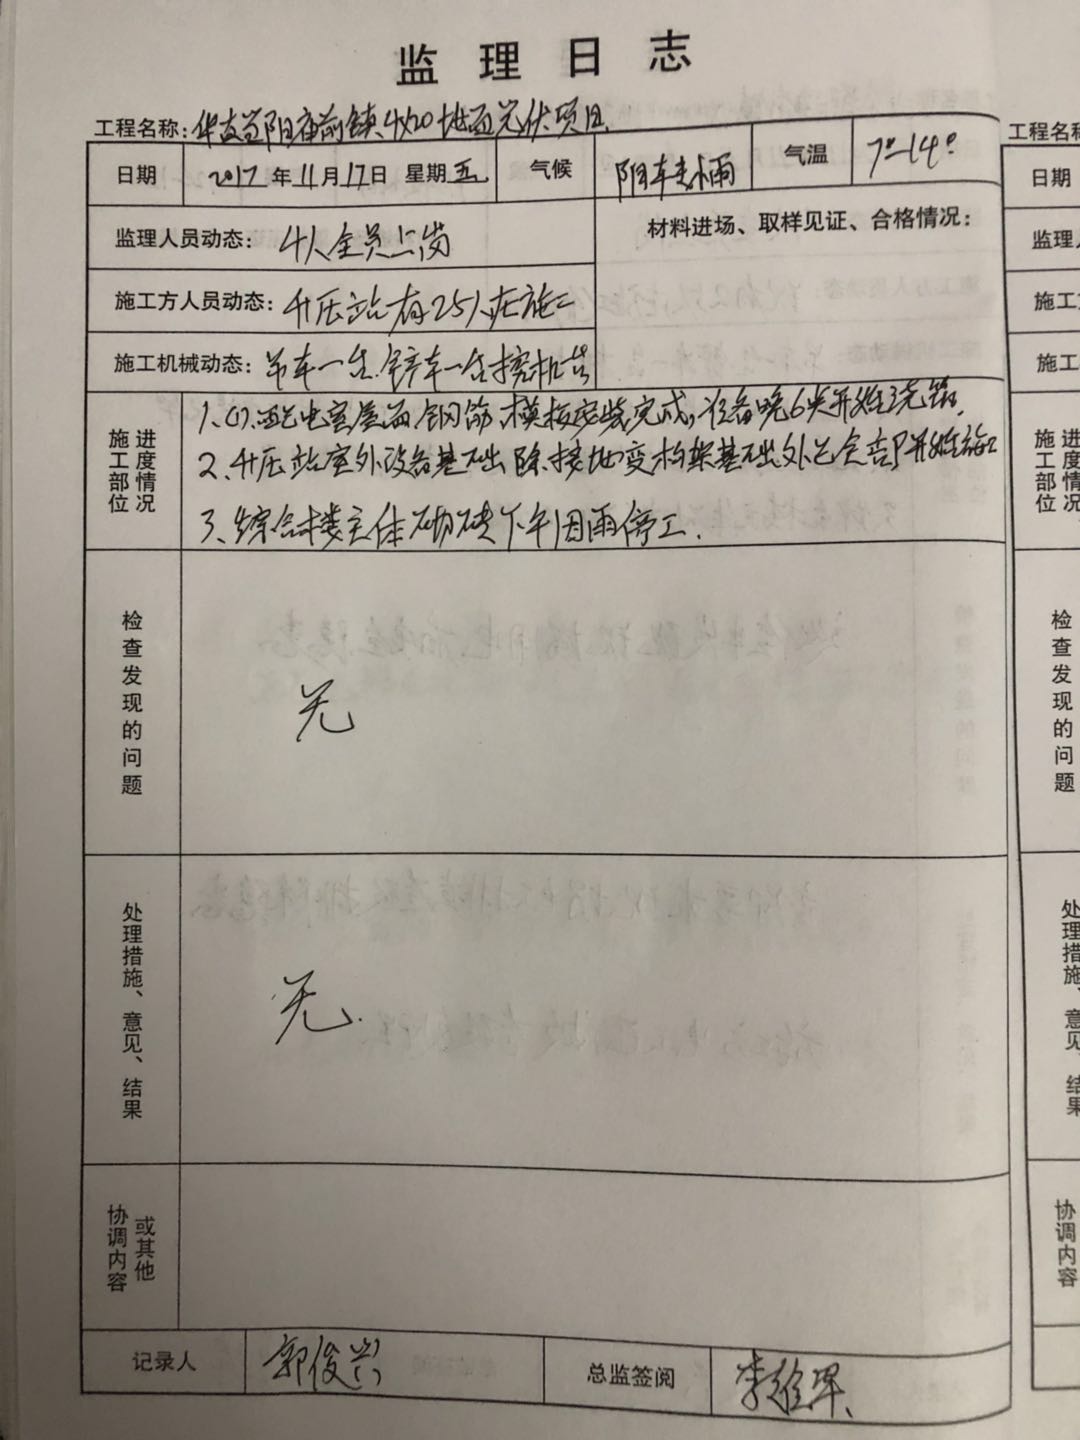 监理日志
工程名称：华友当阳庙前镇 地面光伏项目
日期 2017年11月17日 星期五 气候 阴转小雨 气温 7°-14°
监理人员动态：4人全员上岗
材料进场、取样见证、合格情况：
施工方人员动态：升压站有25人在施工
施工机械动态：吊车一台.铲车一台挖机一台
施工部位 进度情况
1、配电室屋面钢筋、模板安装完成，准备晚6点开始浇筑.
2、升压站室外设备基础除接地变构架基础外已全部开始施工
3、综合楼主体砌砖下午因雨停工.
检查发现的问题
无
处理措施、意见、结果
无.
协调内容 或其他
记录人 郭俊兴 总监签阅
工程名称
日期
监理人
施工方
施工
施工部位 进度情况
检查发现的问题
处理措施、意见、结果
协调内容